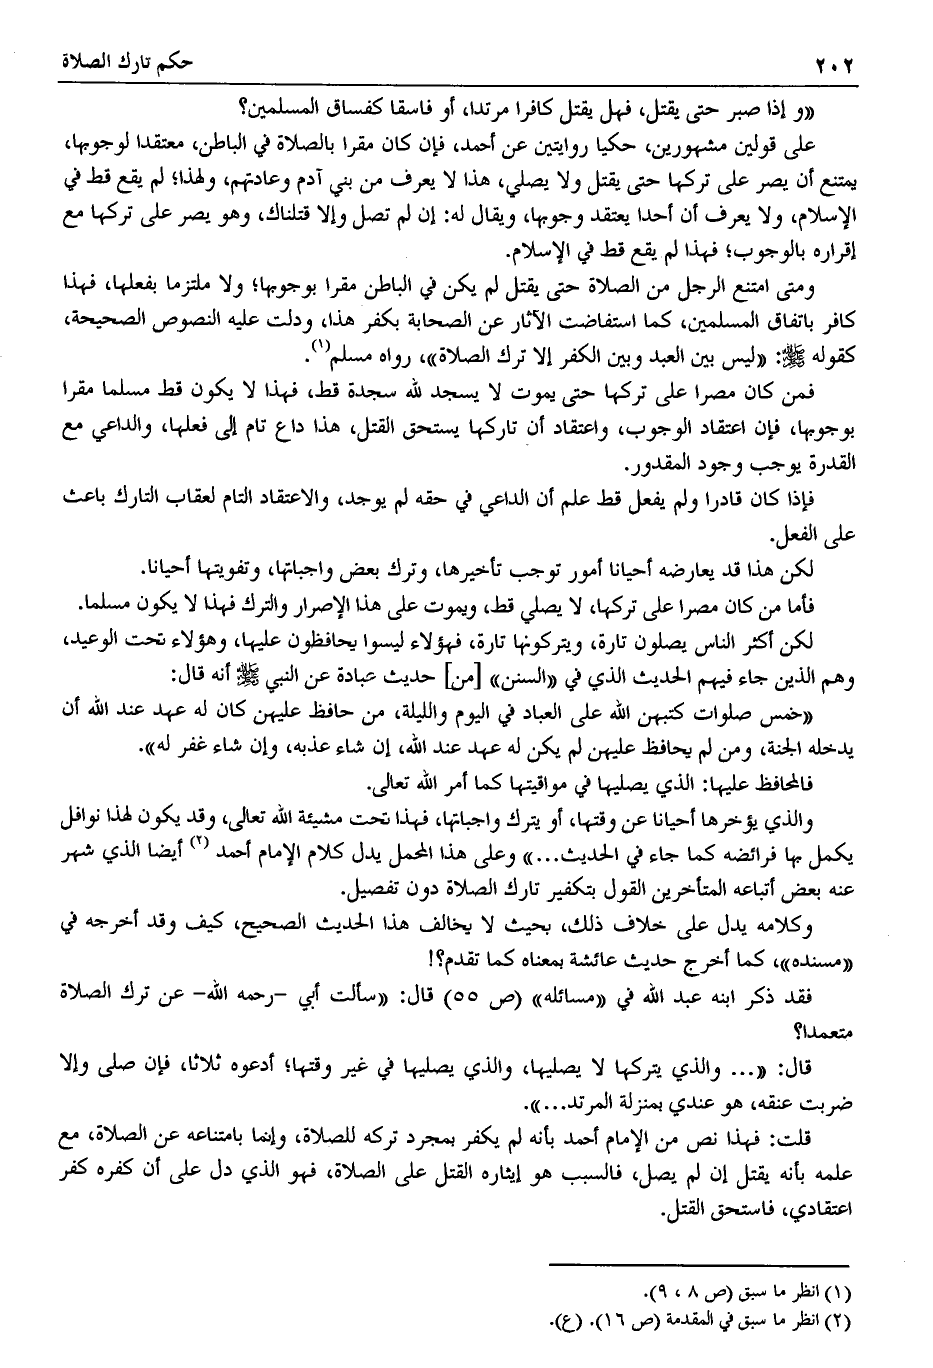 ٢٠٢ حكم تارك الصلاة
«و إذا صبر حتى يقتل، فهل يقتل كافرا مرتدا، أو فاسقا كفساق المسلمين؟
على قولين مشهورين، حكيا روايتين عن أحمد، فإن كان مقرا بالصلاة في الباطن، معتقدا لوجوبها،
يمتنع أن يصر على تركها حتى يقتل ولا يصلي، هذا لا يعرف من بني آدم وعادتهم، ولهذا؛ لم يقع قط في
الإسلام، ولا يعرف أن أحدا يعتقد وجوبها، ويقال له: إن لم تصل وإلا قتلناك، وهو يصر على تركها مع
إقراره بالوجوب؛ فهذا لم يقع قط في الإسلام.
ومتى امتنع الرجل من الصلاة حتى يقتل لم يكن في الباطن مقرا بوجوبها؛ ولا ملتزما بفعلها، فهذا
كافر باتفاق المسلمين، كما استفاضت الآثار عن الصحابة بكفر هذا، ودلت عليه النصوص الصحيحة،
كقوله ﷺ: «ليس بين العبد وبين الكفر إلا ترك الصلاة»، رواه مسلم(١).
فمن كان مصرا على تركها حتى يموت لا يسجد لله سجدة قط، فهذا لا يكون قط مسلما مقرا
بوجوبها، فإن اعتقاد الوجوب، واعتقاد أن تاركها يستحق القتل، هذا داع تام إلى فعلها، والداعي مع
القدرة يوجب وجود المقدور.
فإذا كان قادرا ولم يفعل قط علم أن الداعي في حقه لم يوجد، والاعتقاد التام لعقاب التارك باعث
على الفعل.
لكن هذا قد يعارضه أحيانا أمور توجب تأخيرها، وترك بعض واجباتها، وتفويتها أحيانا.
فأما من كان مصرا على تركها، لا يصلي قط، ويموت على هذا الإصرار والترك فهذا لا يكون مسلما.
لكن أكثر الناس يصلون تارة، ويتركونها تارة، فهؤلاء ليسوا يحافظون عليها، وهؤلاء تحت الوعيد،
وهم الذين جاء فيهم الحديث الذي في «السنن» [من] حديث عبادة عن النبي ﷺ أنه قال:
«خمس صلوات كتبهن الله على العباد في اليوم والليلة، من حافظ عليهن كان له عهد عند الله أن
يدخله الجنة، ومن لم يحافظ عليهن لم يكن له عهد عند الله، إن شاء عذبه، وإن شاء غفر له».
فالمحافظ عليها: الذي يصليها في مواقيتها كما أمر الله تعالى.
والذي يؤخرها أحيانا عن وقتها، أو يترك واجباتها، فهذا تحت مشيئة الله تعالى، وقد يكون لهذا نوافل
يكمل بها فرائضه كما جاء في الحديث...» وعلى هذا المحمل يدل كلام الإمام أحمد (٢) أيضا الذي شهر
عنه بعض أتباعه المتأخرين القول بتكفير تارك الصلاة دون تفصيل.
وكلامه يدل على خلاف ذلك، بحيث لا يخالف هذا الحديث الصحيح، كيف وقد أخرجه في
«مسنده»، كما أخرج حديث عائشة بمعناه كما تقدم؟!
فقد ذكر ابنه عبد الله في «مسائله» (ص ٥٥) قال: «سألت أبي -رحمه الله- عن ترك الصلاة
متعمدا؟
قال: «... والذي يتركها لا يصليها، والذي يصليها في غير وقتها؛ أدعوه ثلاثا، فإن صلى وإلا
ضربت عنقه، هو عندي بمنزلة المرتد...».
قلت: فهذا نص من الإمام أحمد بأنه لم يكفر بمجرد تركه للصلاة، وإنما بامتناعه عن الصلاة، مع
علمه بأنه يقتل إن لم يصل، فالسبب هو إيثاره القتل على الصلاة، فهو الذي دل على أن كفره كفر
اعتقادي، فاستحق القتل.
(١) انظر ما سبق (ص ٨ ، ٩).
(٢) انظر ما سبق في المقدمة (ص ١٦). (ع).